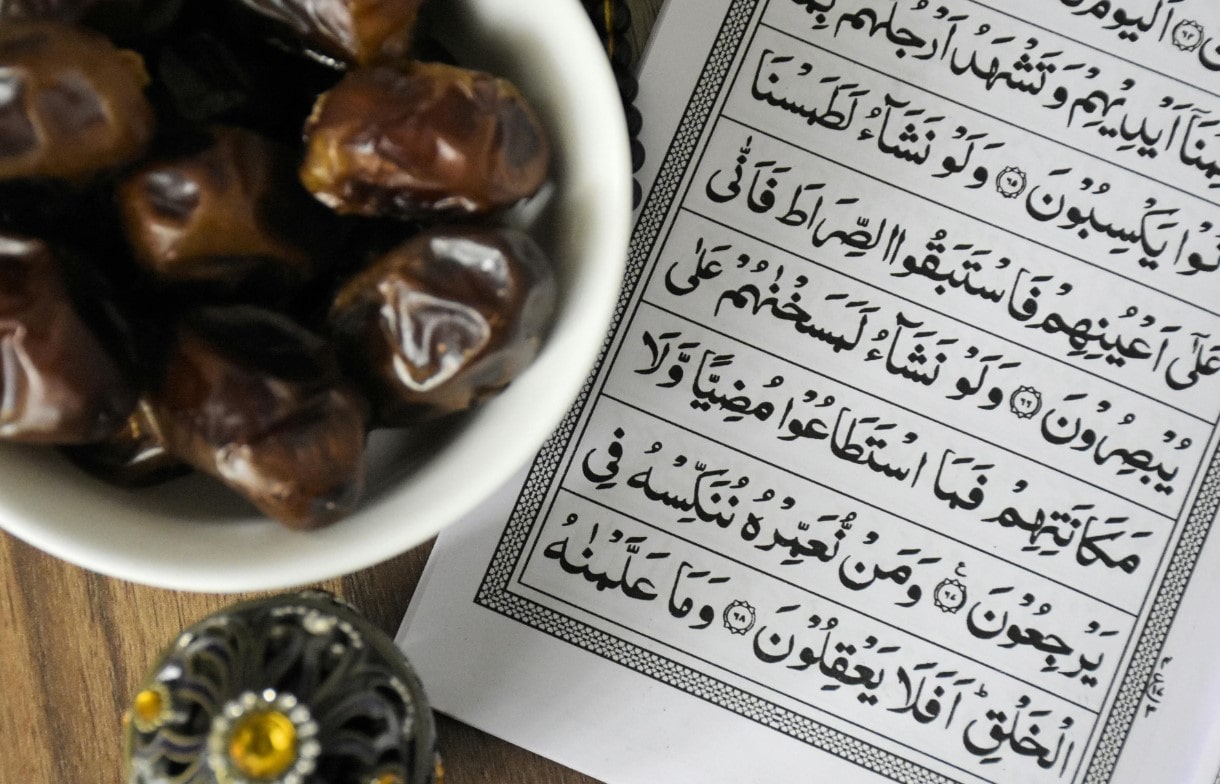 اَلْيَوْمَ
اَيْدِيْهِمْ وَتَشْهَدُ اَرْجُلُهُمْ بِمَا
يَكْسِبُوْنَ ﴿٦٥﴾ وَلَوْ نَشَآءُ لَطَمَسْنَا
عَلٰۤى اَعْيُنِهِمْ فَاسْتَبَقُوا الصِّرَاطَ فَاَنّٰى
يُبْصِرُوْنَ ﴿٦٦﴾ وَلَوْ نَشَآءُ لَمَسَخْنٰهُمْ عَلٰى
مَكَانَتِهِمْ فَمَا اسْتَطَاعُوْا مُضِيًّا وَّلَا
يَرْجِعُوْنَ ﴿٦٧﴾ وَمَنْ نُّعَمِّرْهُ نُنَكِّسْهُ فِى
الْخَلْقِ ؕ اَفَلَا يَعْقِلُوْنَ ﴿٦٨﴾ وَمَا عَلَّمْنٰهُ